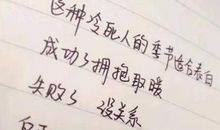 这种冷死人的季节适合表白
成功了拥抱取暖
失败了 没关系